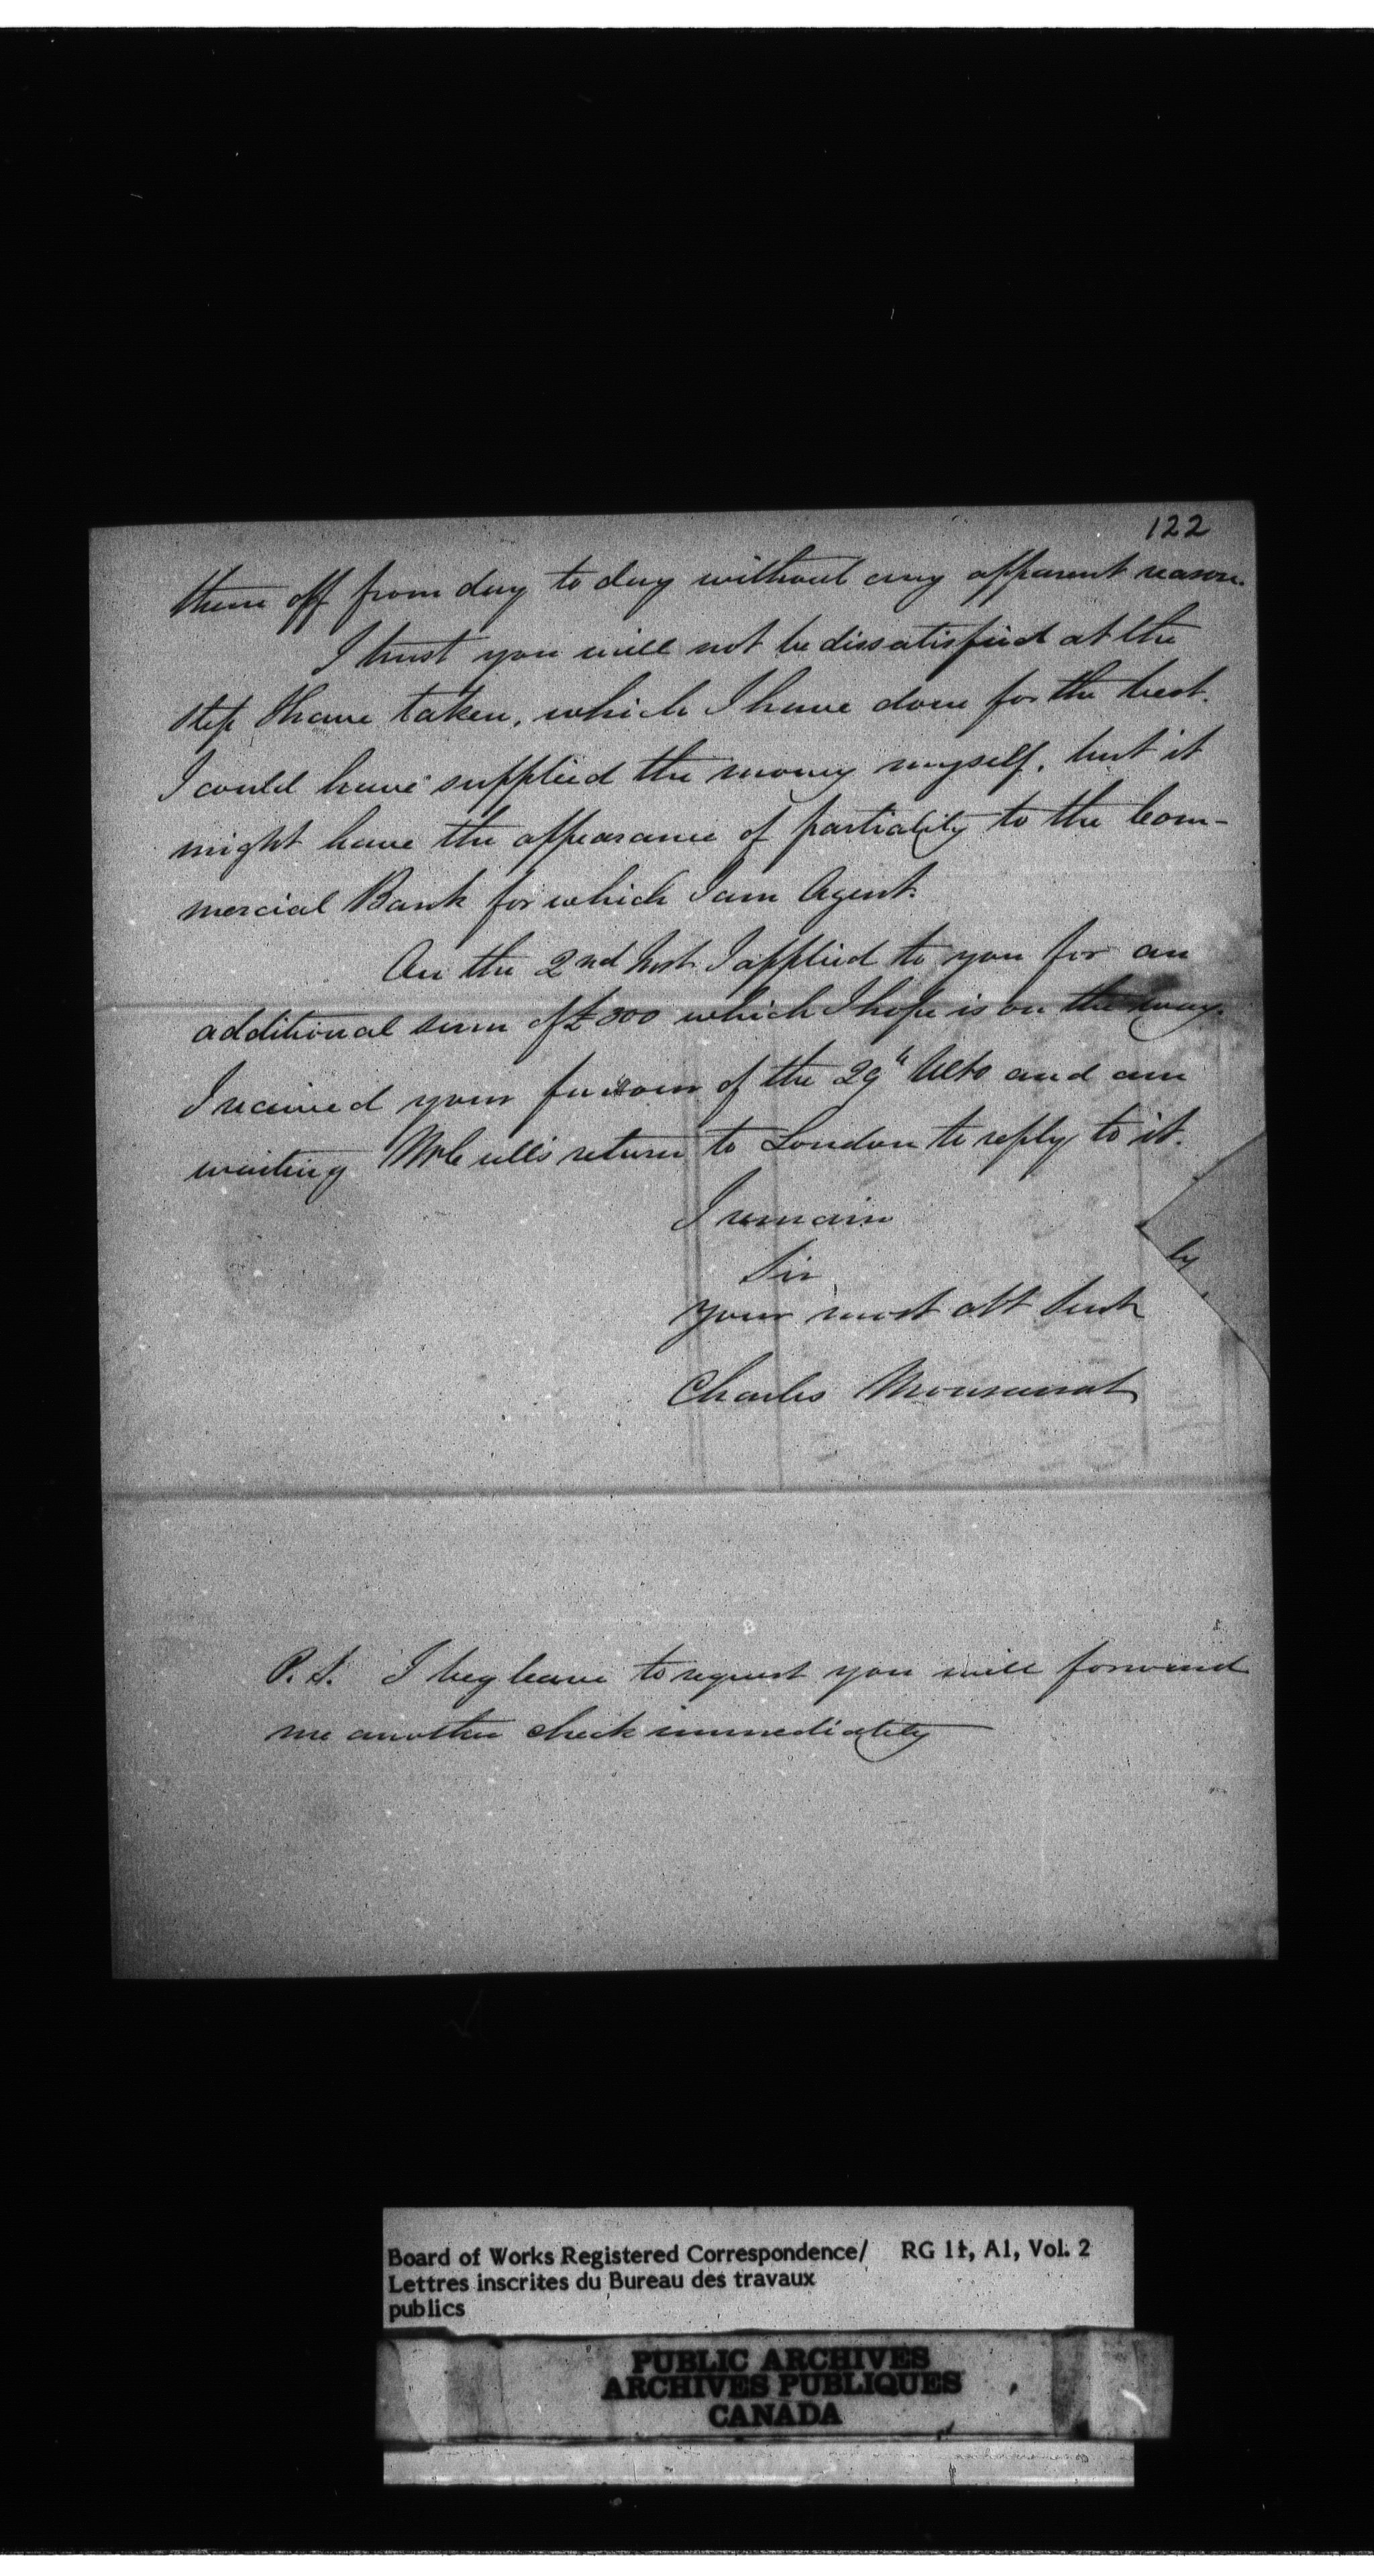 122
them off from day to day without any apparent reason.
I trust you will not be dissatisfied at the
step I have taken, which I have done for the best.
I could have supplied the money myself, but it
might have the appearance of partiality to the Com-
mercial Bank for which I am Agent.
On the 2nd Inst. I applied to you for an
additional sum of £ 300 which I hope is on the way.
I received your favour of the 29th Ulto and am
waiting return to London to reply to it.
I remain
Sir
your most obt Sevt
Charles Monsarrat
by
P. S. I beg leave to request you will forward
me another check immediately
Board of Works Registered Correspondence/ RG 11, A1, Vol. 2
Lettres inscrites du Bureau des travaux
publics
PUBLIC ARCHIVES
ARCHIVES PUBLIQUES
CANADA